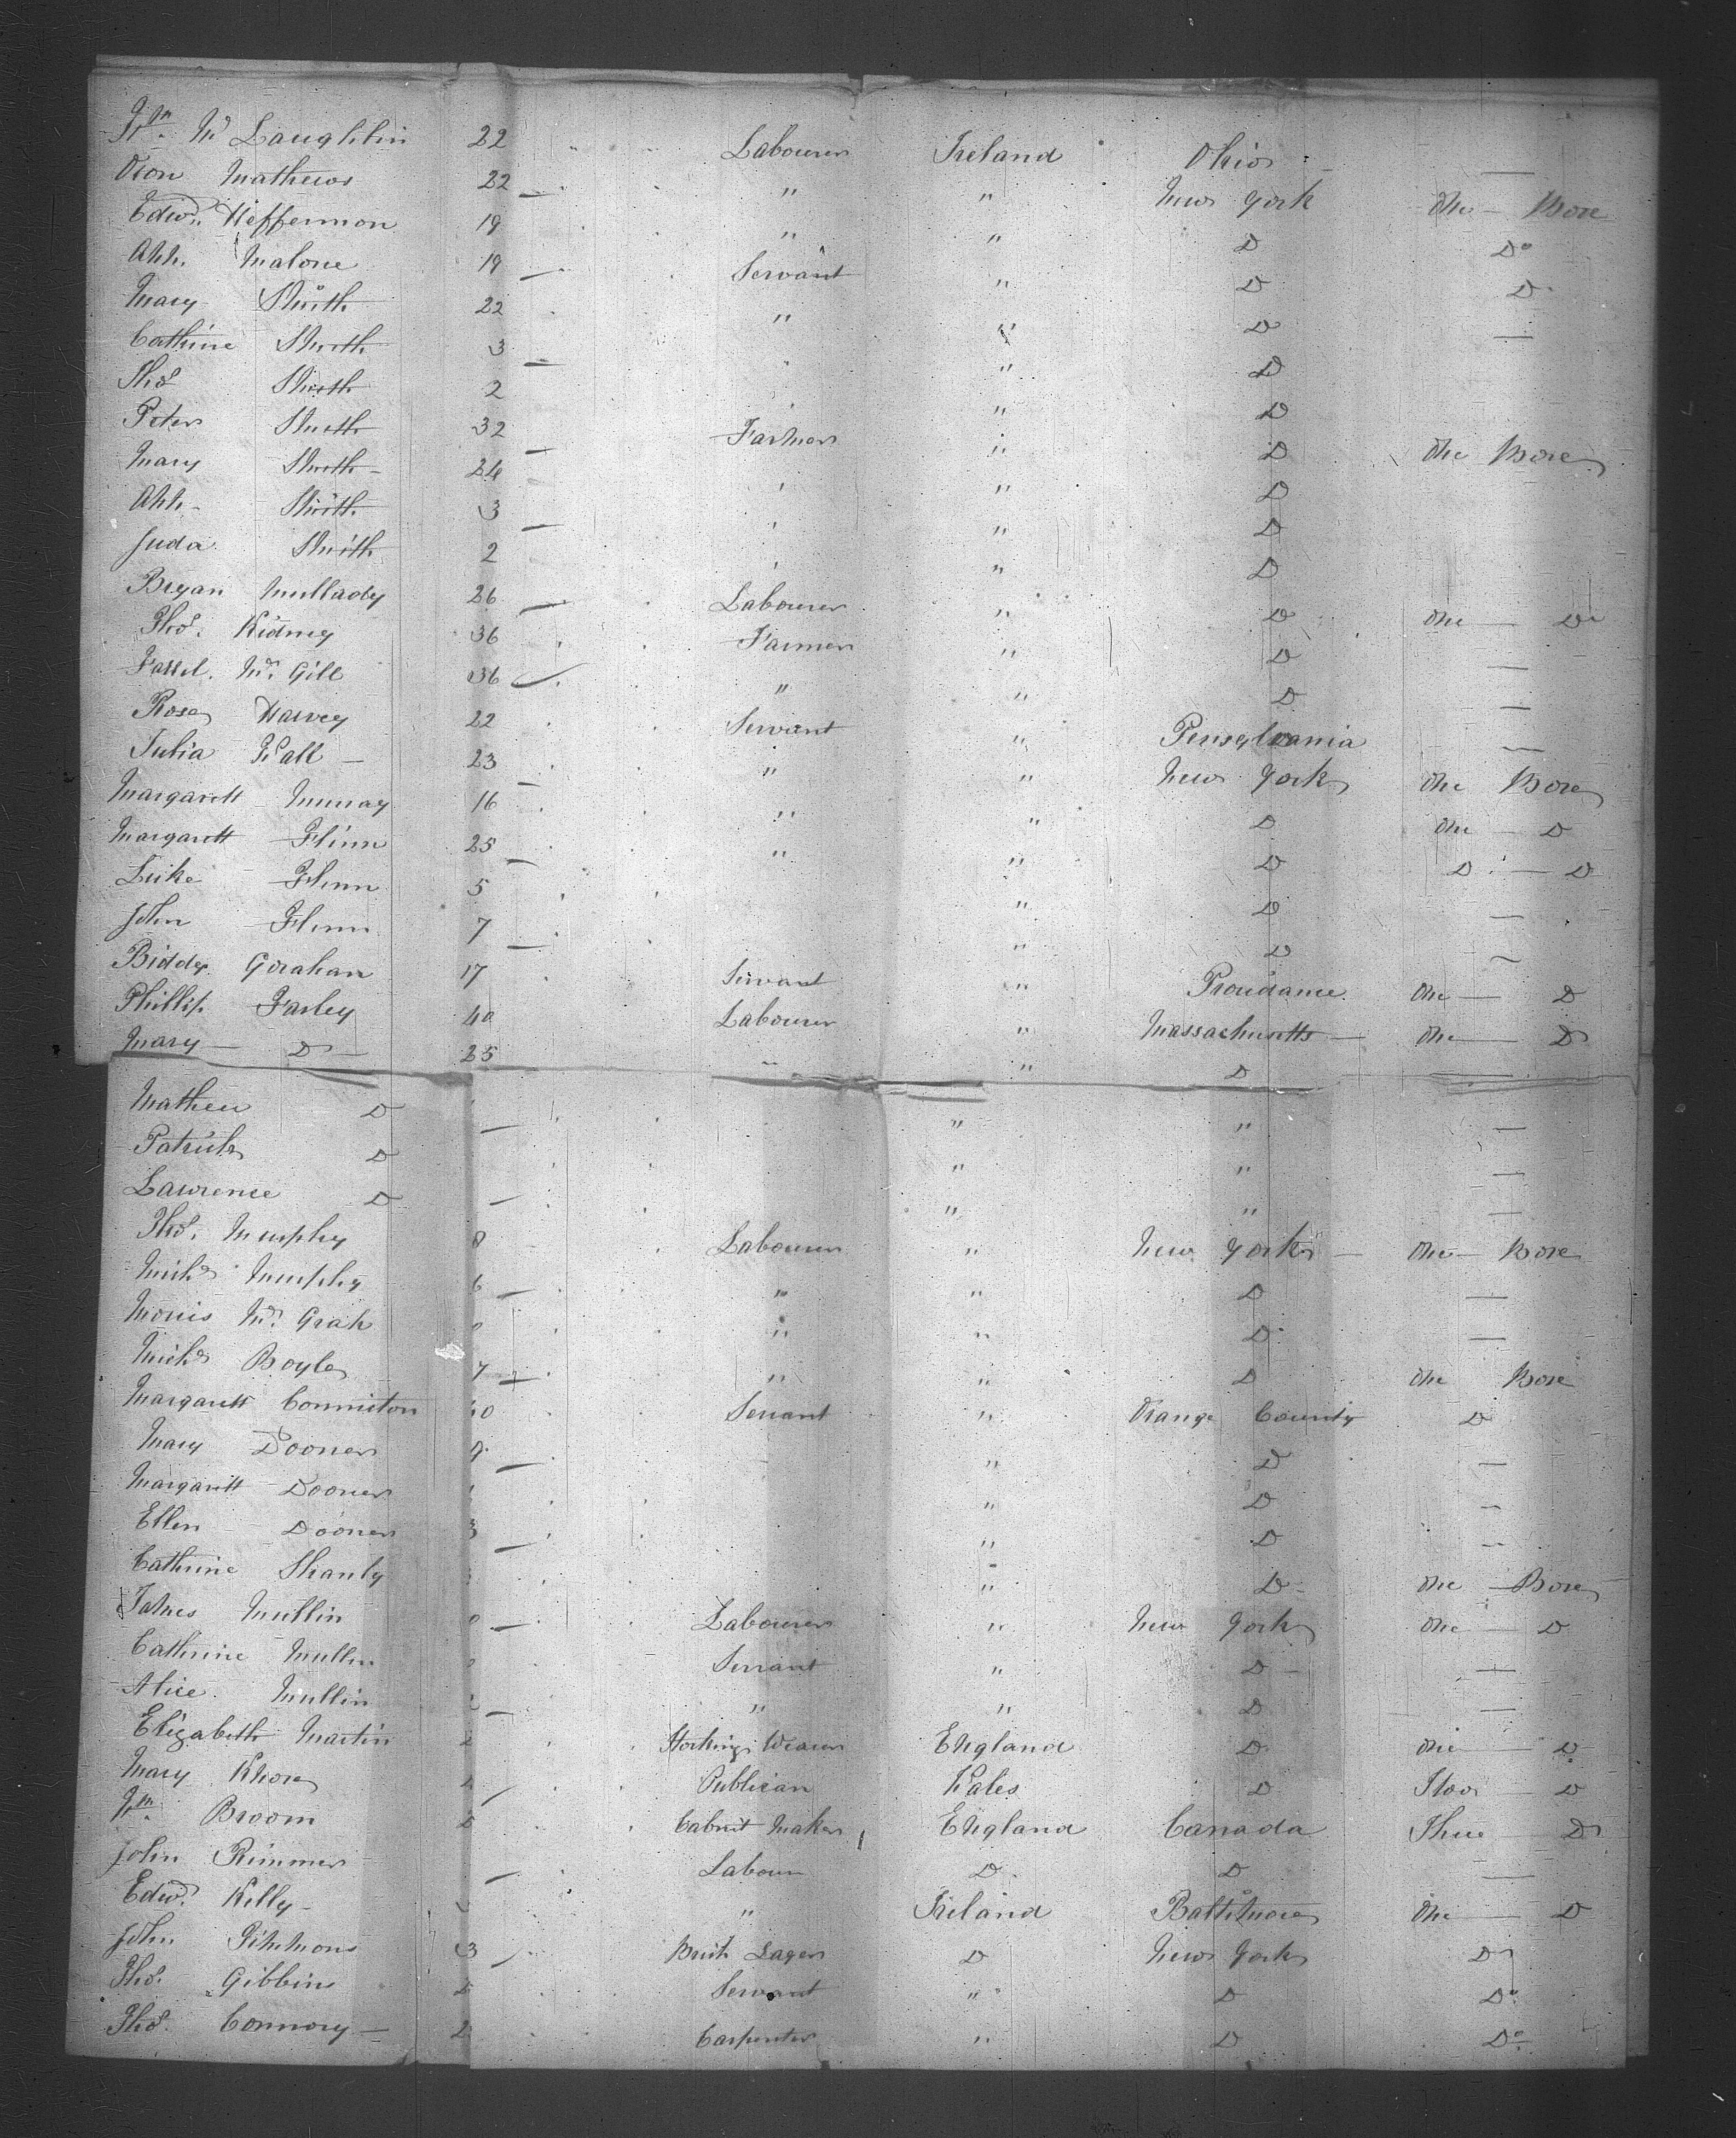 Wm Mc Laughlin 22 Labourer Ireland Ohio —
Owen Mathews 22 " " New York One — Boxe
Edwd. Heffernon 19 " " D Do
Ann Malone 19 Servant " D D
Mary Smith 22 " " D —
Cathrine Smith 3 " D
Thos Smith 2 " D
Peter Smith 32 Farmer " D One Boxe
Mary Smith 24 " D
Ann Smith 3 " D
Juda Smith 2 " D
Bryan Mullady 26 Labourer " D One — Do
Thos. Kidney 36 Farmer " D —
Mc. Gill 36 " " D —
Rose Harvey 22 Servant " Pensylvania —
Julia Wall — 23 " " New York One Boxe
Margarett Murray 16 " " D One — D
Margarett Flinn 25 " " D D — D
Luke Flinn 5 " D —
John Flinn 7 " D —
Biddy Gorahan 17 Servant " Providance One — D
Phillip Farley 40 Labourer " Massachusetts — One — D
Mary — D — 25 " " D —
Mathew D " " —
Patrick D " " —
Lawrence D " " —
Thos. Murphy Labourer " New York — One — Boxe
Michl Murphy " " D —
Morris Mc. Grah " " D —
Michl Boyle " " D One Boxe
Margarett Servant " Orange County D
Mary Dooner " D —
Margarett Dooner " D —
Ellen Dooner " D —
Cathrine Shanly " D One — Boxe
James Mullin Labourer " New York One — D
Cathrine Mullin Servant " D —
Alice Mullin " " D —
Elizabeth Martin Stocking Weaver England D One — D
Mary Publican Wales D Two — D
Wm. Broom Cabnet Maker England Canada Three — D
John Rimmer Labour D D —
Edwd. Kelly " Ireland Baltimore One — D
John Simmons Brick Layer D New York D
Thos. Gibbins Servant " D Do
Thos. Connory — Carpenter " D Do